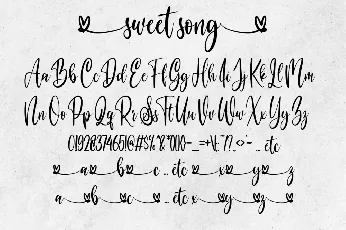 sweet song
Aa Bb Cc Dd Ee Ff Gg Hh Ii Jj Kk Ll Mm
Nn Oo Pp Qq Rr Ss Tt Uu Vv Ww Xx Yy Zz
a b c .. etc x y z
a b c .. etc x y z